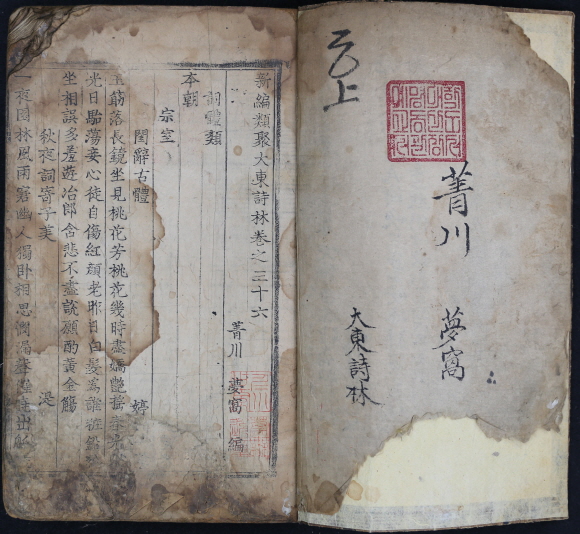 上
菁川 夢窩
大東詩林
新編類聚大東詩林卷之三十六
菁川 夢窩 編
詞體類
本朝
宗室
閨辭古體 婷
玉筯落長鏡坐見桃花芳桃花幾時盡嬌艶
光日駘蕩妾心徒自傷紅顔老昨日白髮爲誰
坐相誤多羞遊冶郞含悲不盡說願酌黃金觴
秋夜詞寄子美 湜
一夜園林風雨寒幽人獨卧相思